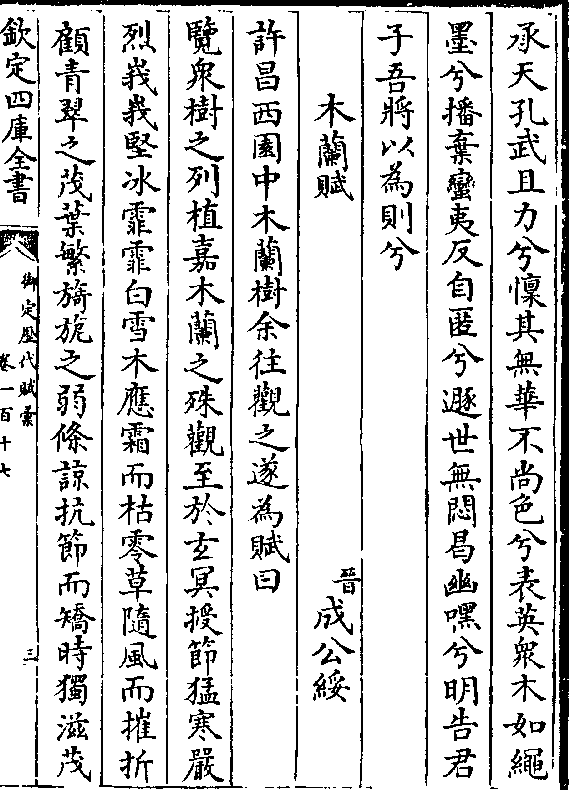 承天孔武且力兮懍其無華不尚色兮表英衆木如繩
墨兮播棄蠻夷反自匿兮遯世無悶曷幽嘿兮明告君
子吾將以為則兮
木蘭賦
晉成公綏
許昌西園中木蘭樹余往觀之遂為賦曰
覽衆樹之列植嘉木蘭之殊觀至於玄冥授節猛寒嚴
烈峩峩堅冰霏霏白雪木應霜而枯零草隨風而摧折
顧青翠之茂葉繁旖旎之弱條諒抗節而矯時獨滋茂
欽定四庫全書
御定歷代賦彙
卷一百十七
三